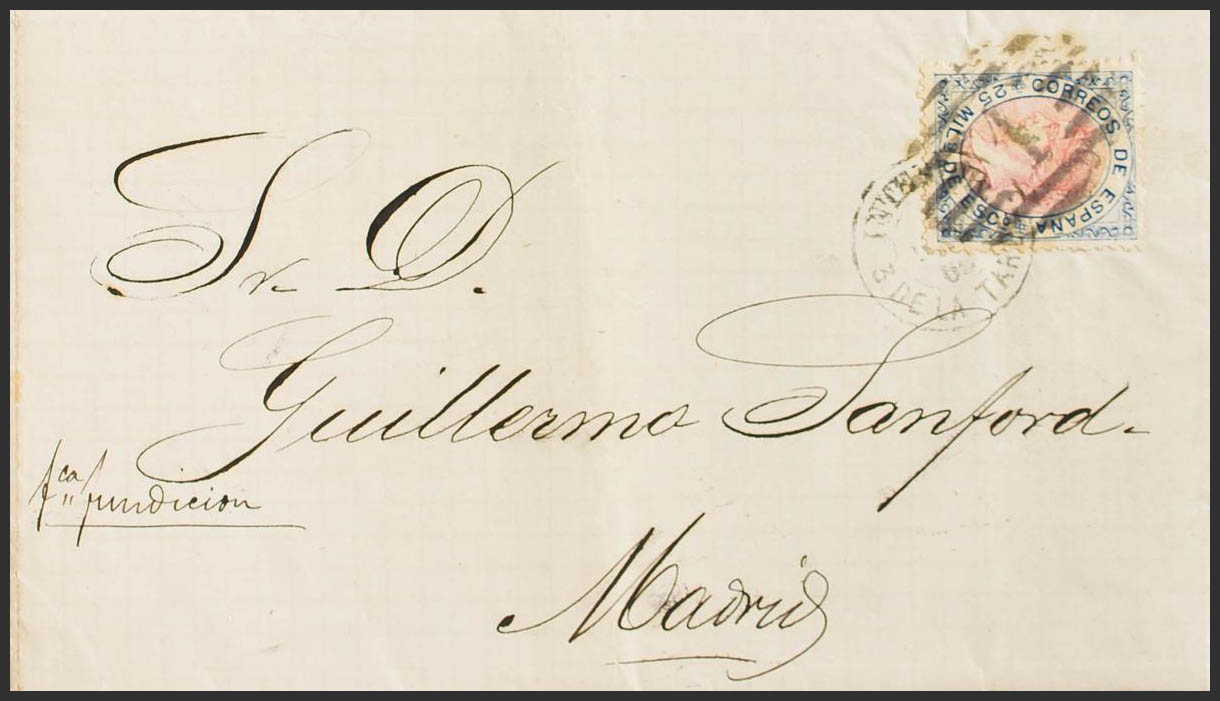 CORREOS DE ESPAÑA
25 MIL.s DE ESCO.
INTE
3 DE LA TAR
Sr D.
Guillermo Sanford.
fca fundicion
Madrid